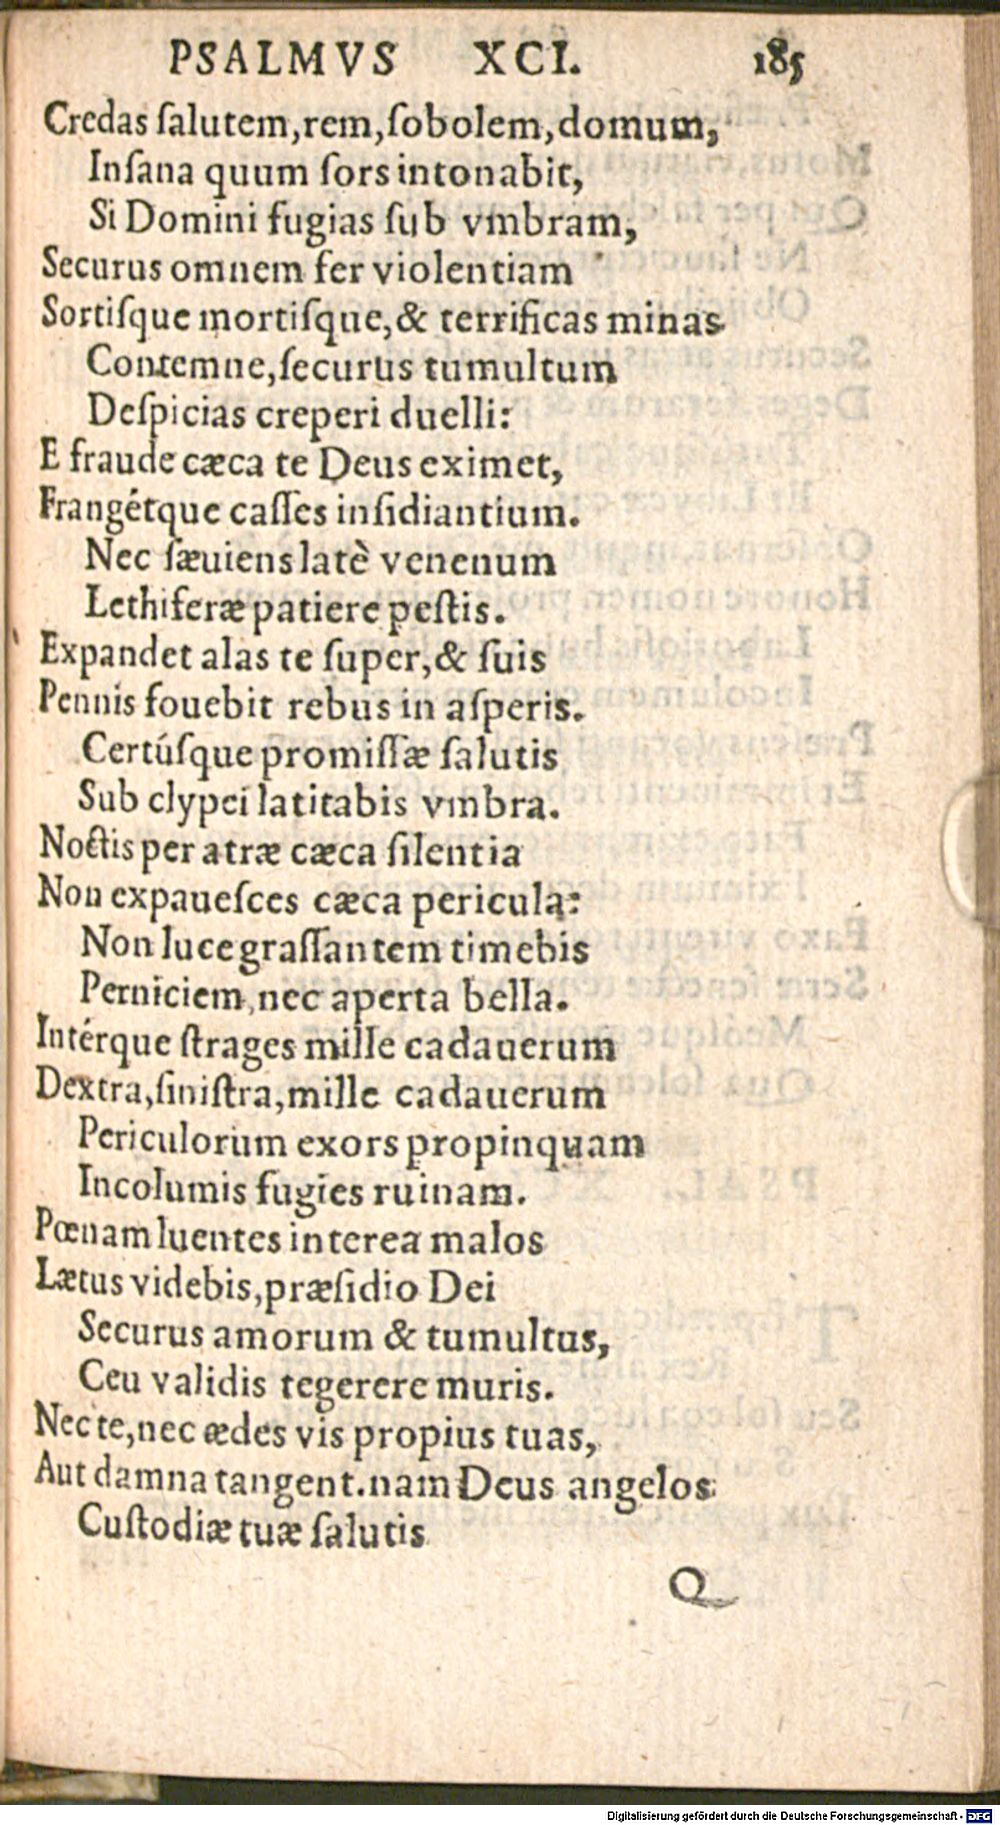 PSALMVS XCI. 185
Credas ſalutem,rem,ſobolem,domum,
Inſana quum ſors intonabit,
Si Domini fugias ſub vmbram,
Securus omnem fer violentiam
Sortiſque mortiſque,& terrificas minas
Contemne,ſecurus tumultum
Deſpicias creperi duelli:
E fraude cæca te Deus eximet,
Frangétque caſſes inſidiantium.
Nec ſæuiens latè venenum
Lethiferæ patiere peſtis.
Expandet alas te ſuper,& ſuis
Pennis fouebit rebus in aſperis.
Certúſque promiſſæ ſalutis
Sub clypei latitabis vmbra.
Noctis per atræ cæca ſilentia
Non expaueſces cæca pericula:
Non luce graſſantem timebis
Perniciem,nec aperta bella.
Intérque ſtrages mille cadauerum
Dextra,ſiniſtra,mille cadauerum
Periculorum exors propinquam
Incolumis fugies ruinam.
Pœnam luentes interea malos
Lætus videbis,præſidio Dei
Securus amorum & tumultus,
Ceu validis tegerere muris.
Nec te,nec ædes vis propius tuas,
Aut damna tangent.nam Deus angelos
Cuſtodiæ tuæ ſalutis
Q
Digitalisierung gefördert durch die Deutsche Forschungsgemeinschaft - DFG